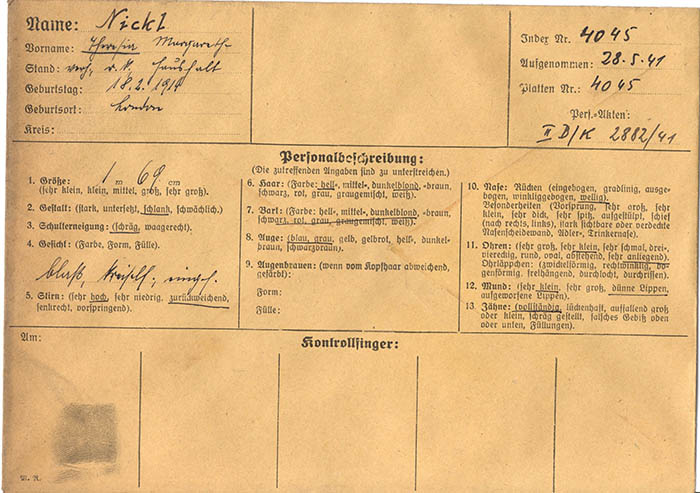 Name: Nickl
Vorname: Theresia Margareth-
Stand: verh., r. k. Haushalt
Geburtstag: 18.2.1911
Geburtsort: London
Kreis:
Index Nr. 4045
Aufgenommen: 28.5.41
Platten Nr.: 4045
Pers.=Akten:
II D/K 2882/41
Personalbeschreibung:
(Die zutreffenden Angaben sind zu unterstreichen.)
1. Größe: 1 m 69 cm
(sehr klein, klein, mittel, groß, sehr groß).
2. Gestalt: (stark, untersetzt, schlank, schwächlich).
3. Schulterneigung: (schräg, waagerecht).
4. Gesicht: (Farbe, Form, Fülle).
blaß, kreiself., eingef.
5. Stirn: (sehr hoch, sehr niedrig, zurückweichend,
senkrecht, vorspringend).
6. Haar: (Farbe: hell-, mittel-, dunkelblond, -braun,
schwarz, rot, grau, graugemischt, weiß).
7. Bart: (Farbe: hell-, mittel-, dunkelblond, -braun,
schwarz, rot, grau, graugemischt, weiß).
8. Auge: (blau, grau, gelb, gelbrot, hell-, dunkel-
braun, schwarzbraun).
9. Augenbrauen: (wenn vom Kopfhaar abweichend,
gefärbt):
Form:
Fülle:
10. Nase: Rücken (eingebogen, gradlinig, ausge-
bogen, winkliggebogen, wellig).
Besonderheiten (Vorsprung, sehr groß, sehr
klein, sehr dick, sehr spitz, aufgestülpt, schief
(nach rechts, links), stark sichtbare oder verdeckte
Nasenscheidewand, Adler-, Trinkernase).
11. Ohren: (sehr groß, sehr klein, sehr schmal, drei-,
viereckig, rund, oval, abstehend, sehr anliegend).
Ohrläppchen: (zwickelförmig, rechtwinklig, bo-
genförmig, freihängend, durchlocht, durchrissen).
12. Mund: (sehr klein, sehr groß, dünne Lippen,
aufgeworfene Lippen).
13. Zähne: (vollständig, lückenhaft, auffallend groß
oder klein, schräg gestellt, falsches Gebiß oben
oder unten, Füllungen).
Am:
Kontrollfinger:
M. R.